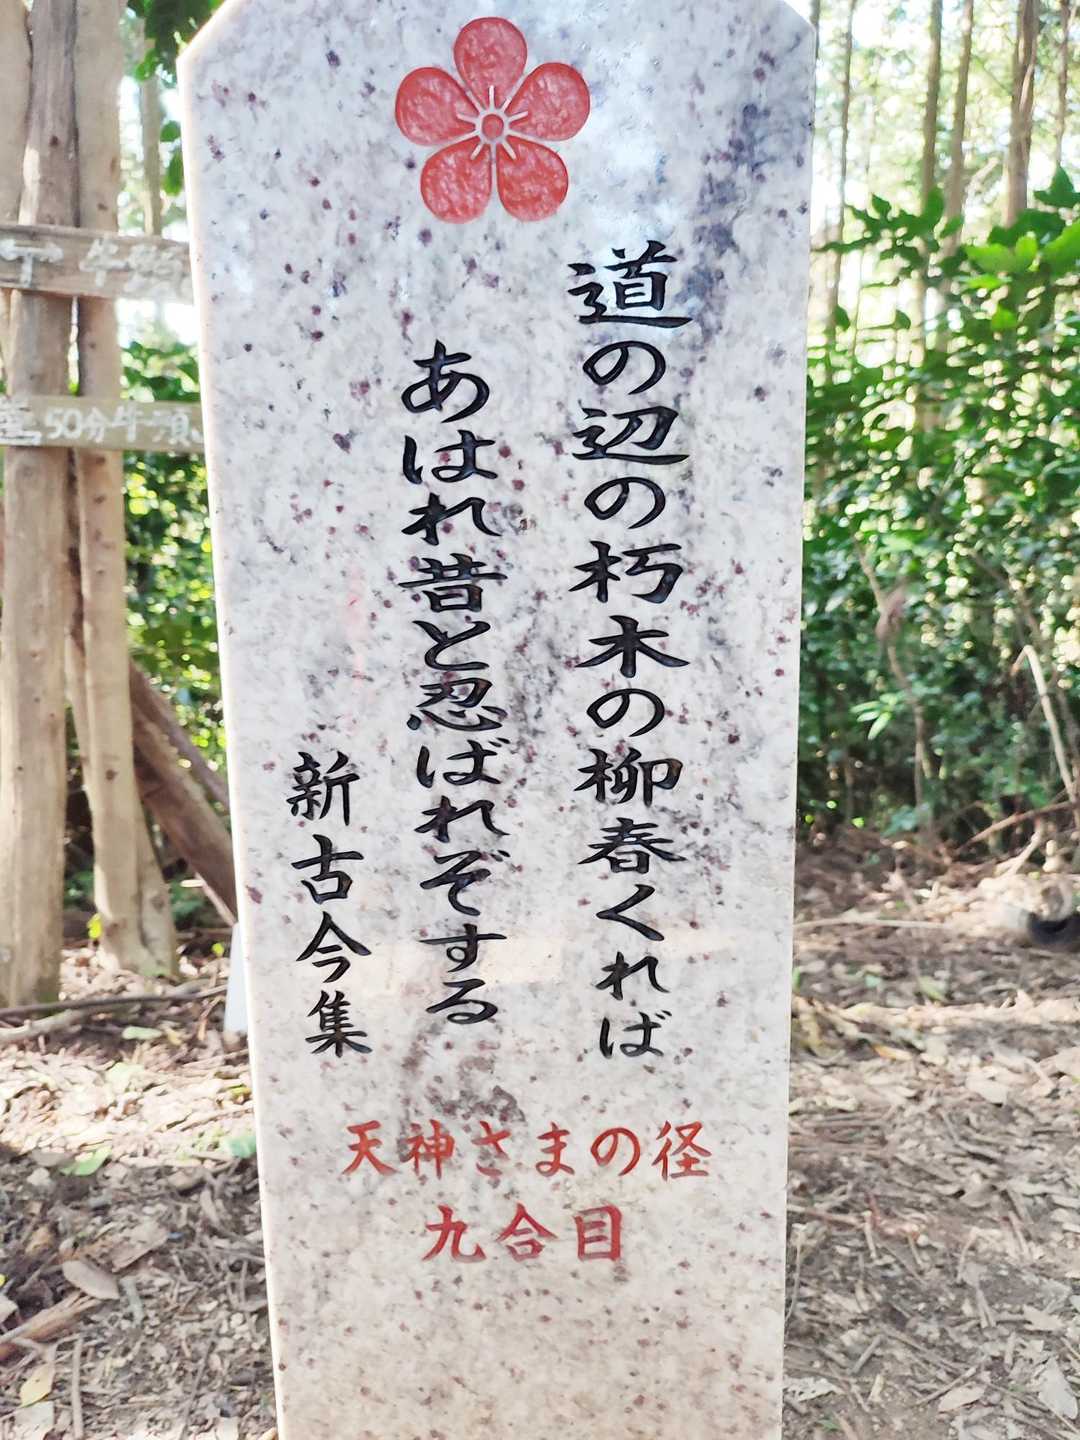 道の辺の朽木の柳春くれば
あはれ昔と忍ばれぞする
新古今集
天神さまの径
九合目
50分牛頸